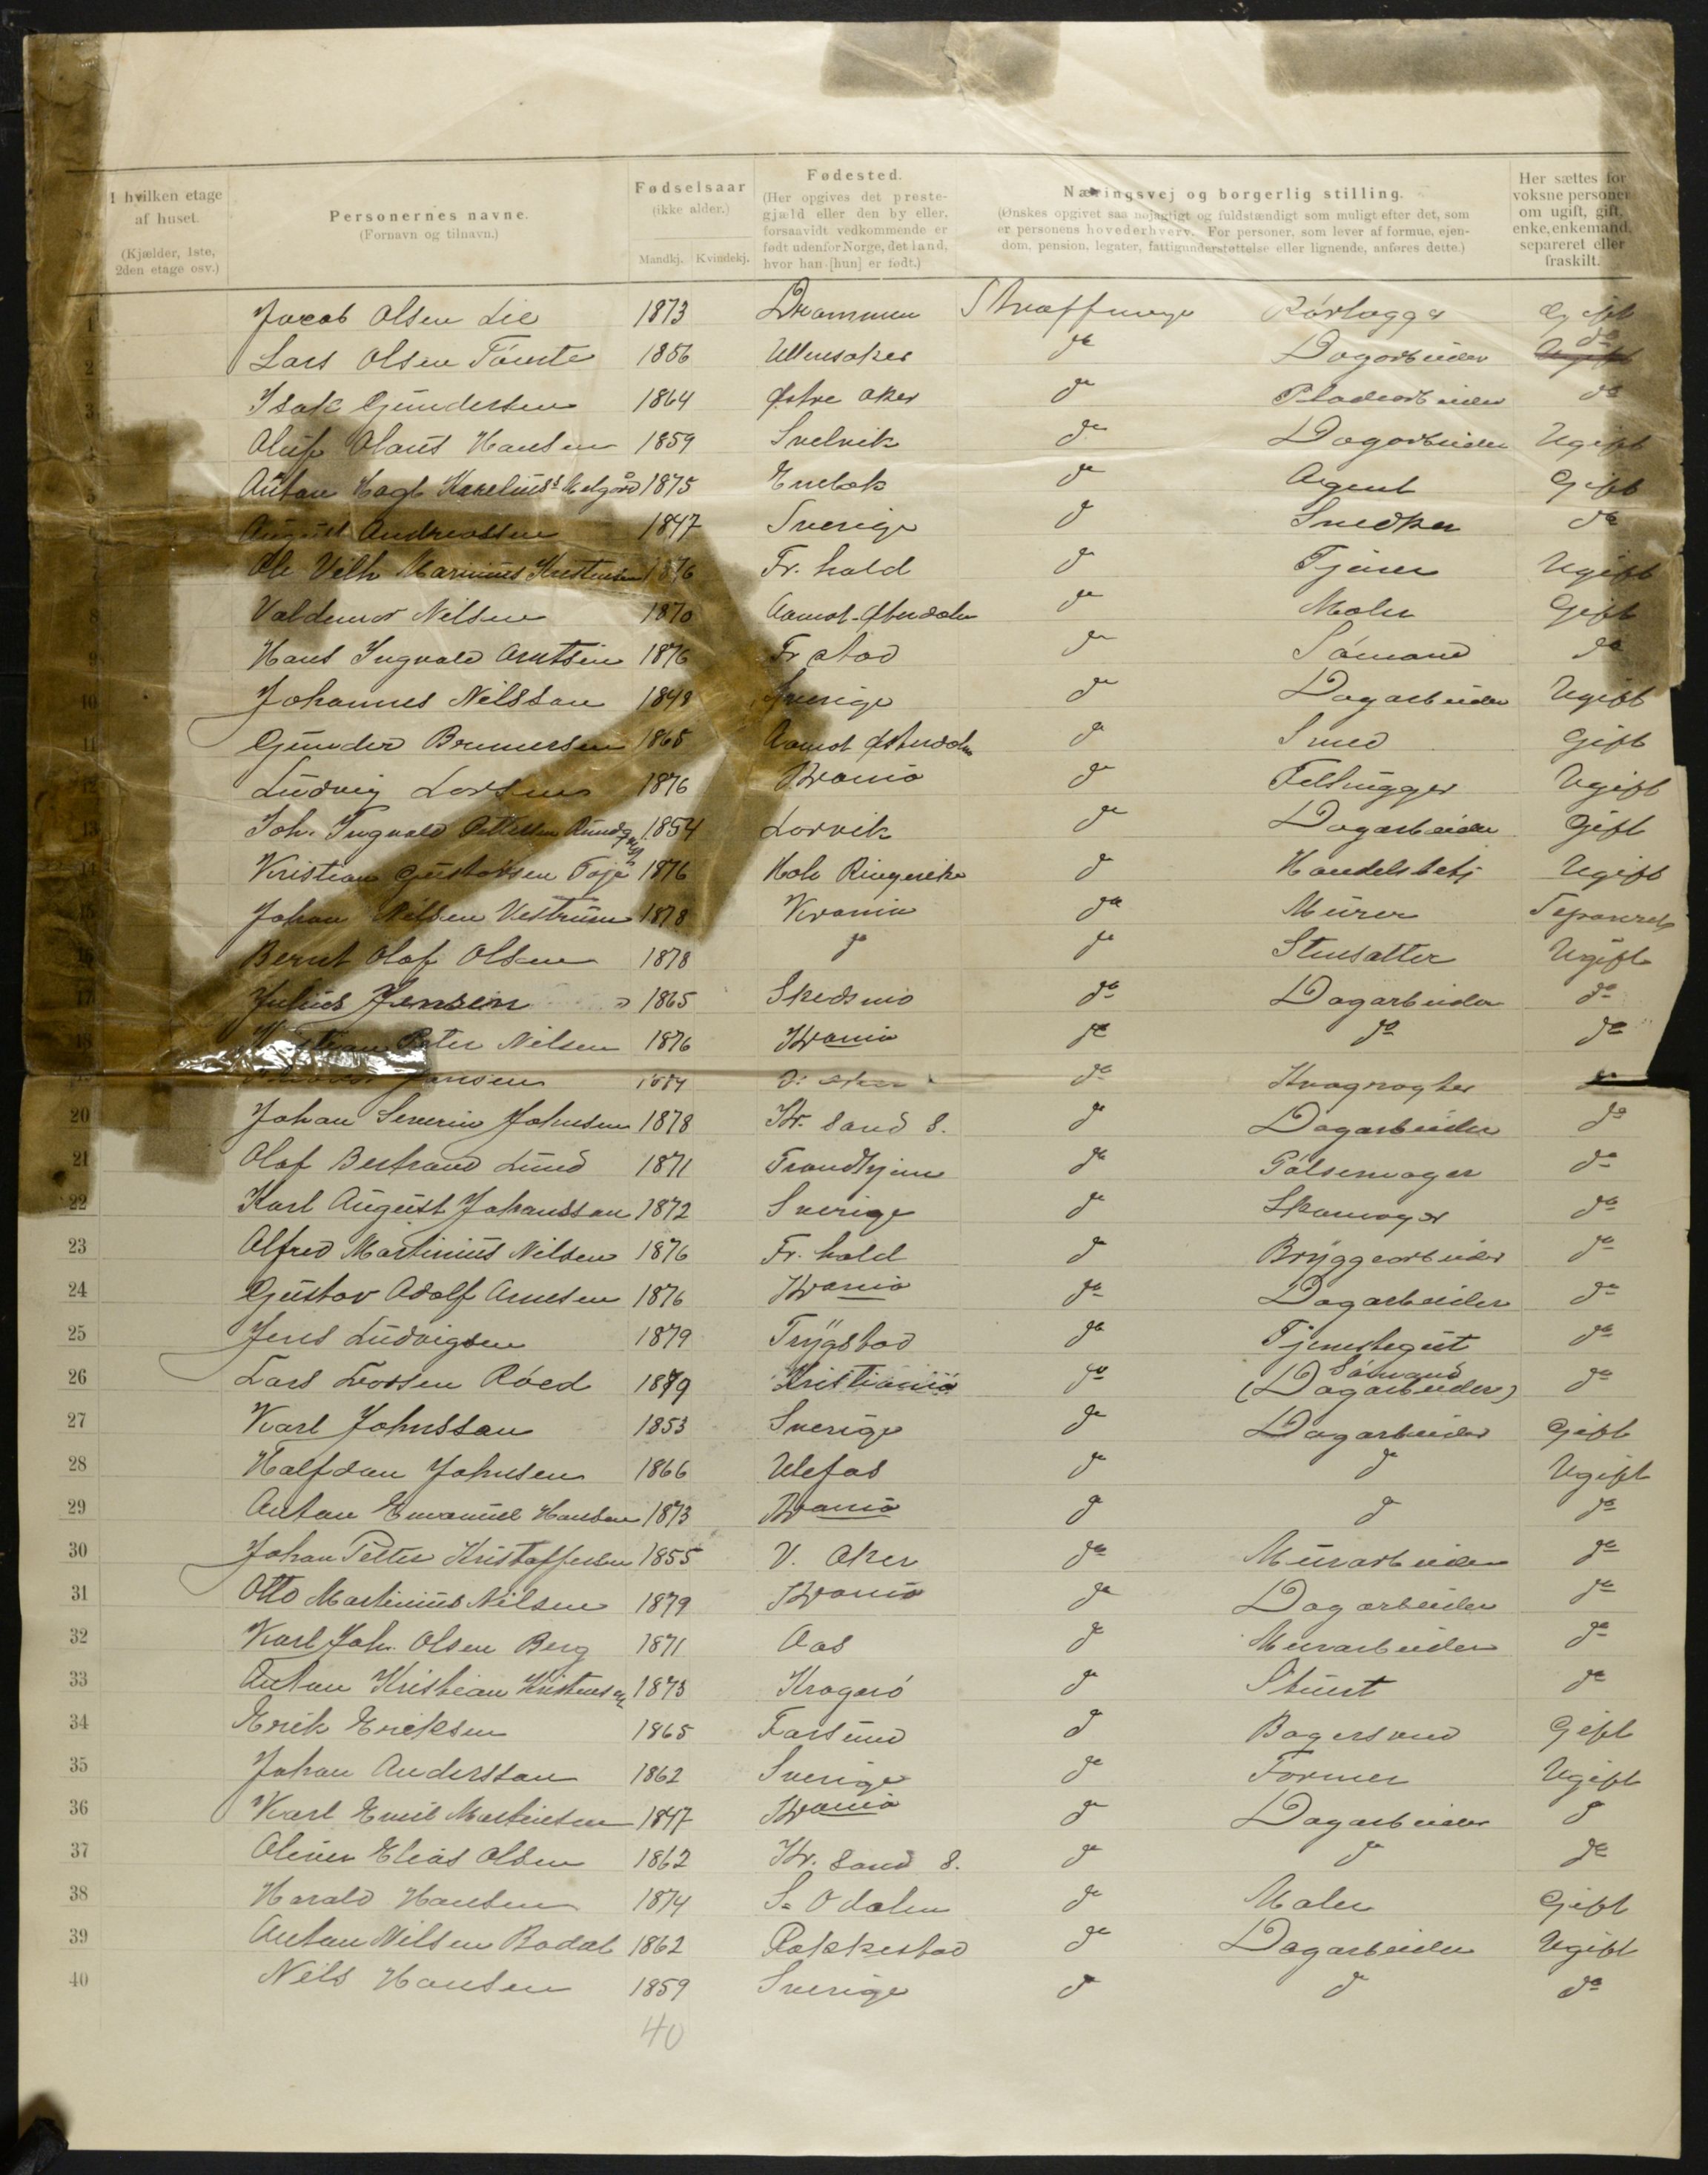 No.
I hvilken etage af huset.
(Kjælder, 1ste, 2den etage osv.)
Personernes navne.
(Fornavn og tilnavn.)
Fødselsaar
(ikke alder.)
Mandkj. Kvindekj.
Fødested.
(Her opgives det prestegjæld eller den by eller, forsaavidt vedkommende er født udenfor Norge, det land, hvor han [hun] er født.)
Næringsvej og borgerlig stilling.
(Ønskes opgivet saa nøjagtigt og fuldstændigt som muligt efter det, som er personens hovederhverv. For personer, som lever af formue, ejendom, pension, legater, fattigunderstøttelse eller lignende, anføres dette.)
Her sættes for voksne personer om ugift, gift, enke, enkemand, separeret eller fraskilt.
1 Jacob Olsen Lie 1873 Drammen Straffange Rørlægger Gift
2 Lars Olsen Tømte 1856 Ullensaker do Dagarbeider do
3 Isak Gundersen 1864 Østre Aker do Pladearbeider do
4 Oluf Olaus Hansen 1859 Svelvik do Dagarbeider Ugift
5 Anton Hagb. Karelius 1875 Enebak do Agent Gift
6 August Andreassen 1847 Sverige do Snedker do
7 Ole Vilh Marinius Kristensen 1876 Fr. hald do Tjener Ugift
8 Valdemar Nilsen 1870 Aamot Østerdalen do Maler Gift
9 Hans Ingvald Arntsen 1876 Fr stad do Sømand do
10 Johannes Nilsson 1848 Sverige do Dagarbeider Ugift
11 Gunder Brynersen 1865 Aamot Østerdalen do Smed Gift
12 Ludvig Larsen 1876 Krania do Filhugger Ugift
13 Joh. Ingvald Pettersen 1854 Larvik do Dagarbeider Gift
14 Kristian Gustavsen Toje 1876 Hole Ringerike do Handelsbetj Ugift
15 Johan Nilsen Vestrum 1878 Krania do Murer Separeret
16 Bernt Olaf Olsen 1878 do do Stensætter Ugift
17 Julius Jensen 1865 Skedsmo do Dagarbeider do
18 Kristian Peter Nilsen 1876 Krania do do do
19 Jansen V. Aker do
20 Johan Severin Johnsen 1878 Kr. sand S. do Dagarbeider do
21 Olaf Bertrand Lund 1871 Trondhjem do Pølsemager do
22 Karl August Johansson 1872 Sverige do Skomager do
23 Alfred Martinius Nilsen 1876 Fr. hald do Bryggearbeider do
24 Gustav Adolf Arnesen 1876 Krania do Dagarbeider do
25 Jens Ludvigsen 1879 Trygstad do Tjenstegut do
26 Lars Larsen Røed 1879 Kristiania do Sømand (Dagarbeider) do
27 Karl Johnsson 1853 Sverige do Dagarbeider Gift
28 Halfdan Johnsen 1866 Ulefos do do Ugift
29 Anton Emanuel Hansen 1873 Krania do do do
30 Johan Petter Kristoffersen 1855 V. Aker do Murarbeider do
31 Otto Martinius Nilsen 1879 Krania do Dagarbeider do
32 Karl Joh. Olsen Berg 1871 Aas do Murarbeider do
33 Anton Kristian Kristensen 1873 Kragerø do Stuert do
34 Erik Eriksen 1865 Farsund do Bagersvend Gift
35 Johan Andersson 1862 Sverige do Former Ugift
36 Karl Emil Martinsen 1847 Krania do Dagarbeider do
37 Oliver Elias Olsen 1862 Kr. sand S. do do do
38 Harald Hansen 1874 S. Odalen do Maler Gift
39 Anton Nilsen Bodal 1862 Rakkestad do Dagarbeider Ugift
40 Nils Hansen 1859 Sverige do do do
40